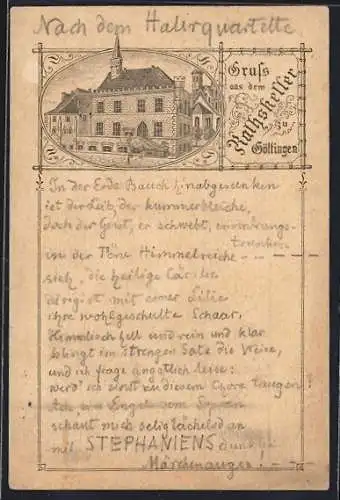 Nach dem Halirquartette
Gruss
aus dem
Rathskeller
zu
Göttingen
In der Erde Bauch hinabgesunken
ist der Leib, der kummerbleiche,
doch der Geist, er schwebt, erinnrungs-
trunken
in der Töne Himmelreiche
sich, die heilige Cäcilie
dirigirt mit einer Lilie
ihre wohlgeschulte Schaar,
Himmlisch hell und rein und klar
klingt im strengen Satz die Weise,
und ich frage ängstlich leise:
werd' ich einst zu diesem Chore taugen
Ach, ein Engel vom
schaut mich seliglächelnd an
mit STEPHANIENS dunkle
Märchenaugen!